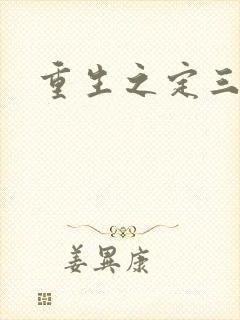 重生之定三
姜異康